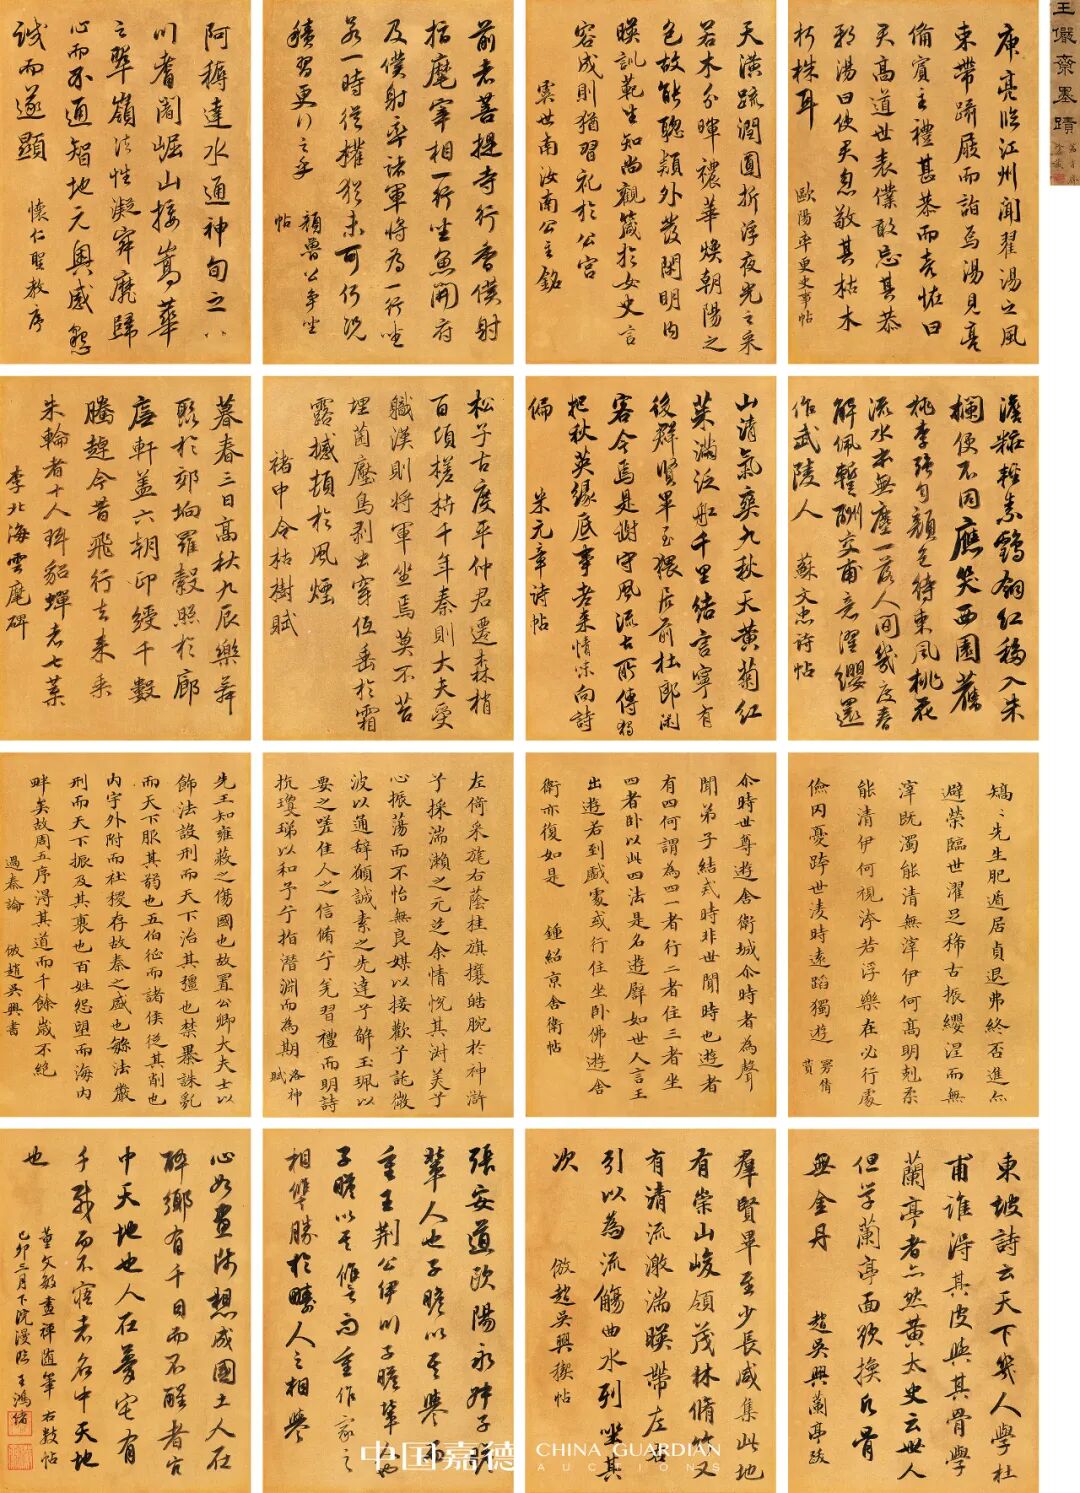 王儼齋墨蹟
庾亮臨江州聞翟湯之風
束帶躡屐而詣焉湯見亮
備賓主禮甚恭而亮怪曰
君高道世表僕敢忘其恭
邪湯曰使君忽敬其枯木
朽株耳
歐陽率更史事帖
天潢疏潤圓折浮夜光之采
若木分暉穠華煥朝陽之
色故能聰穎外發閑明內
暎訓範生知尚觀箴於女史言
容成則猶習礼於公宮
虞世南汝南公主銘
前者菩提寺行香僕射
指麾宰相一行坐魚開府
及僕射率諸軍將為一行坐
若一時從權猶未可何況
積習更行之乎
顏魯公爭坐
帖
阿耨達水通神甸之八
川耆闍崛山接嵩華
之翠嶺法性凝寂靡歸
心而不通智地元奧感懇
誠而遂顯
懷仁聖教序
入朱
欄便不同應笑西園舊
桃李強勻顏色待東風桃花
流水本無塵一落人間幾度春
解佩暫酬交甫意濯纓還
作武陵人
蘇文忠詩帖
山清氣爽九秋天黃菊紅
茱滿泛船千里結言寧有
後群賢畢至猥居前杜郎閑
客今焉是謝守風流古所傳獨
把秋英緣底事老來情味向詩
偏
米元章詩帖
松子古度平仲君遷森梢
百頃槎枿千年秦則大夫受
職漢則將軍坐焉莫不苔
埋菌壓鳥剥虫穿低垂於霜
露撼頓於風煙
褚中令枯樹賦
暮春三日高秋九辰樂舞
聚於郊坰羅縠照於廊
廡軒蓋六朝印綬千數
騰趠今昔飛行去來乘
朱輪者十人珥貂蟬者七葉
李北海雲麾碑
矯矯先生肥遁居貞退弗終否進亦
避榮臨世濯足稀古振纓涅而無
滓既濁能清無滓伊何高明剋柔
能清伊何視洿若浮樂在必行處
儉罔憂跨世淩時遠蹈獨遊
尒時世尊遊舍衛城尒時者為聲
聞弟子結戒時非世聞時也遊者
有四何謂為四一者行二者住三者坐
四者卧以此四法是名遊譬如世人言王
出遊若到處或行住坐卧佛遊舍
衛亦復如是
鍾紹京舍衛帖
左倚采旄右蔭桂旗攘皓腕於神滸
兮採湍瀨之元芝余情悅其淑美兮
心振蕩而不怡無良媒以接歡兮託微
波以通辭願誠素之先達兮解玉珮以
要之嗟佳人之信脩兮羌習禮而明詩
抗瓊珶以和予兮指潛淵而為期
洛神
賦
先王知雍蔽之傷國也故置公卿大夫士以
飾法設刑而天下治其彊也禁暴誅亂
而天下服其弱也五伯征而諸侯從其削也
內守外附而社稷存故秦之盛也繁法嚴
刑而天下振及其衰也百姓怨望而海內
畔矣故周五序得其道而千餘歲不絕
過秦論
倣趙吳興書
東坡詩云天下幾人學杜
甫誰得其皮與其骨學
蘭亭者亦然黃太史云世人
但學蘭亭面欲換凡骨
無金丹
趙吳興蘭亭跋
群賢畢至少長咸集此地
有崇山峻領茂林脩竹又
有清流激湍暎帶左右
引以為流觴曲水列坐其
次
倣趙吳興禊帖
張安道歐陽永叔子瞻
輩人也子瞻以其譽而
重王荊公伊川子瞻輩人也
子瞻以其隙而重作家之
相隙勝於疇人之相譽
心如畫師想成國土人在
醉鄉有千日而不醒者官
中天地也人在夢宅有
千載而不寤者名中天地
也
董文敏畫禪隨筆
右數帖
己卯三月下浣漫臨王鴻緒
中国嘉德
CHINA GUARDIAN
AUCTIONS